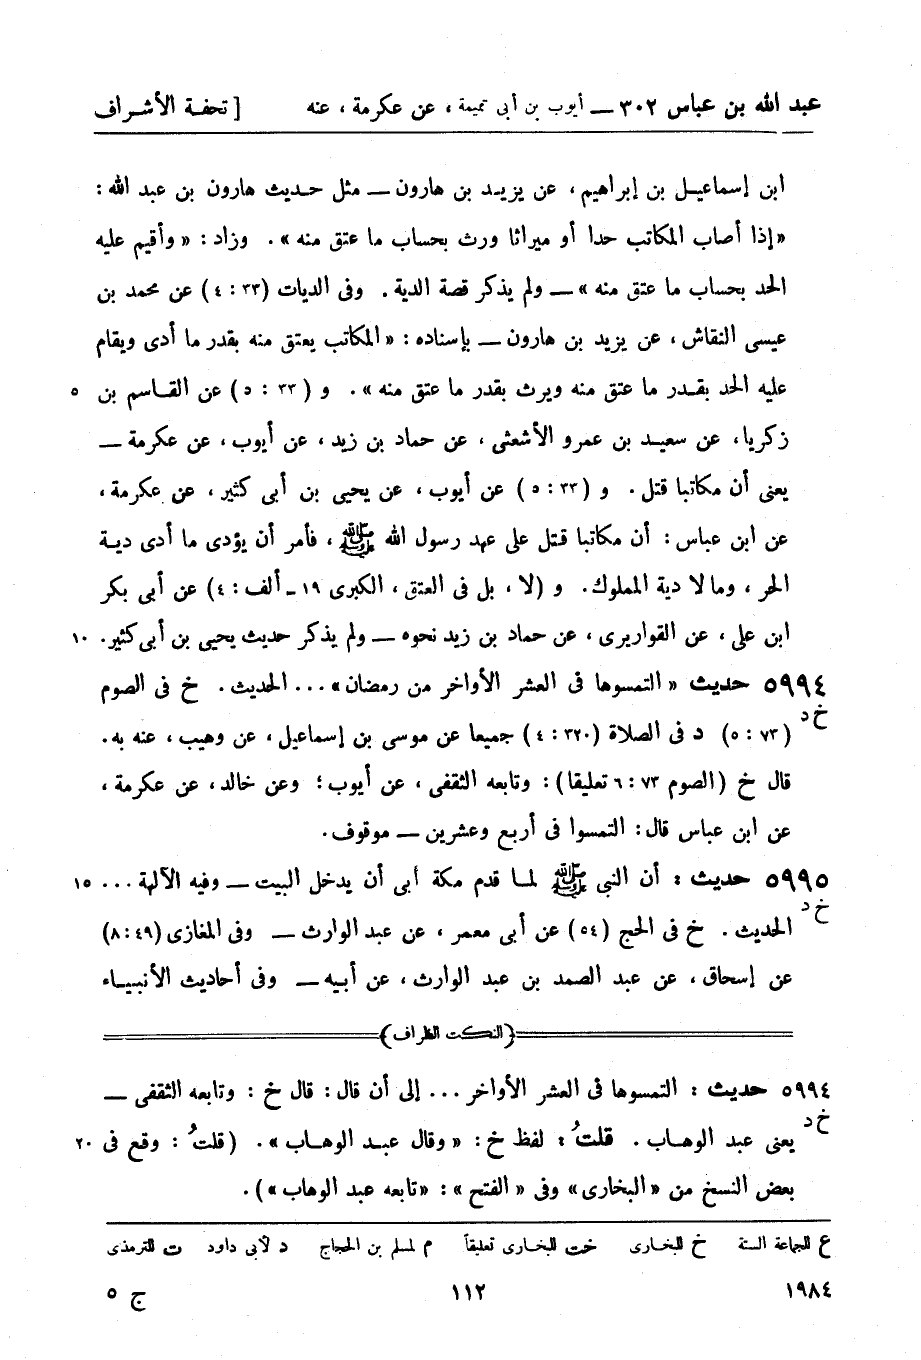 عبد الله بن عباس ٣٠٢ — أيوب بن أبى تميمة ، عن عكرمة ، عنه [ تحفة الأشراف
ابن إسماعيل بن إبراهيم ، عن يزيد بن هارون — مثل حديث هارون بن عبد الله :
«إذا أصاب المكاتب حدا أو ميراثا ورث بحساب ما عتق منه» . وزاد : « وأقيم عليه
الحد بحساب ما عتق منه » — ولم يذكر قصة الدية . وفى الديات (٣٣ : ٤) عن محمد بن
عيسى النقاش ، عن يزيد بن هارون — بإسناده : «المكاتب يعتق منه بقدر ما أدى ويقام
عليه الحد بقدر ما عتق منه ويرث بقدر ما عتق منه» . و (٣٣ : د) عن القاسم بن ٥
زكريا، عن سعيد بن عمرو الأشعثى ، عن حماد بن زيد ، عن أيوب ، عن عكرمة —
يعنى أن مكاتبا قتل . و (٣٣ : ٥) عن أيوب ، عن يحيى بن أبى كثير ، عن عكرمة ،
عن ابن عباس : أن مكاتبا قتل على عهد رسول الله ﷺ ، فأمر أن يؤدى ما أدى دية
الحر ، وما لا دية المملوك . و (لا ، بل فى العتق ، الكبرى ١٩ - ألف : ٤) عن أبى بكر
ابن على ، عن القواريرى ، عن حماد بن زيد نحوه — ولم يذكر حديث يحيى بن أبى كثير . ١٠
٥٩٩٤ حديث « التمسوها فى العشر الأواخر من رمضان» ... الحديث . خ فى الصوم
خ د (٧٣ : ٥) د فى الصلاة (٣٢٠ : ٤) جميعا عن موسى بن إسماعيل ، عن وهيب ، عنه به .
قال خ (الصوم ٧٣ : ٦ تعليقا) : وتابعه الثقفى ، عن أيوب ؛ وعن خالد، عن عكرمة ،
عن ابن عباس قال : التمسوا فى أربع وعشرين — موقوف .
٥٩٩٥ حديث : أن النبي ﷺ لما قدم مكة أبى أن يدخل البيت — وفيه الآلهة ... ١٥
خ د الحديث . خ فى الحج (٥٤) عن أبى معمر ، عن عبد الوارث — وفى المغازى (٤٩ : ٨)
عن إسحاق ، عن عبد الصمد بن عبد الوارث ، عن أبيه — وفى أحاديث الأنبياء
(النكت الظراف)
٥٩٩٤ حديث : التمسوها فى العشر الأواخر ... إلى أن قال : قال خ : وتابعه الثقفى —
خ د يعنى عبد الوهاب . قلتُ : لفظ خ : « وقال عبد الوهاب » . (قلتُ : وقع فى ٢٠
بعض النسخ من «البخارى» وفى «الفتح » : «تابعه عبد الوهاب ») .
ع للجماعة الستة خ للبخارى خت للبخارى تعليقاً م لمسلم بن الحجاج د لأبى داود ت للترمذى
١٩٨٤ ١١٢ ج ٥